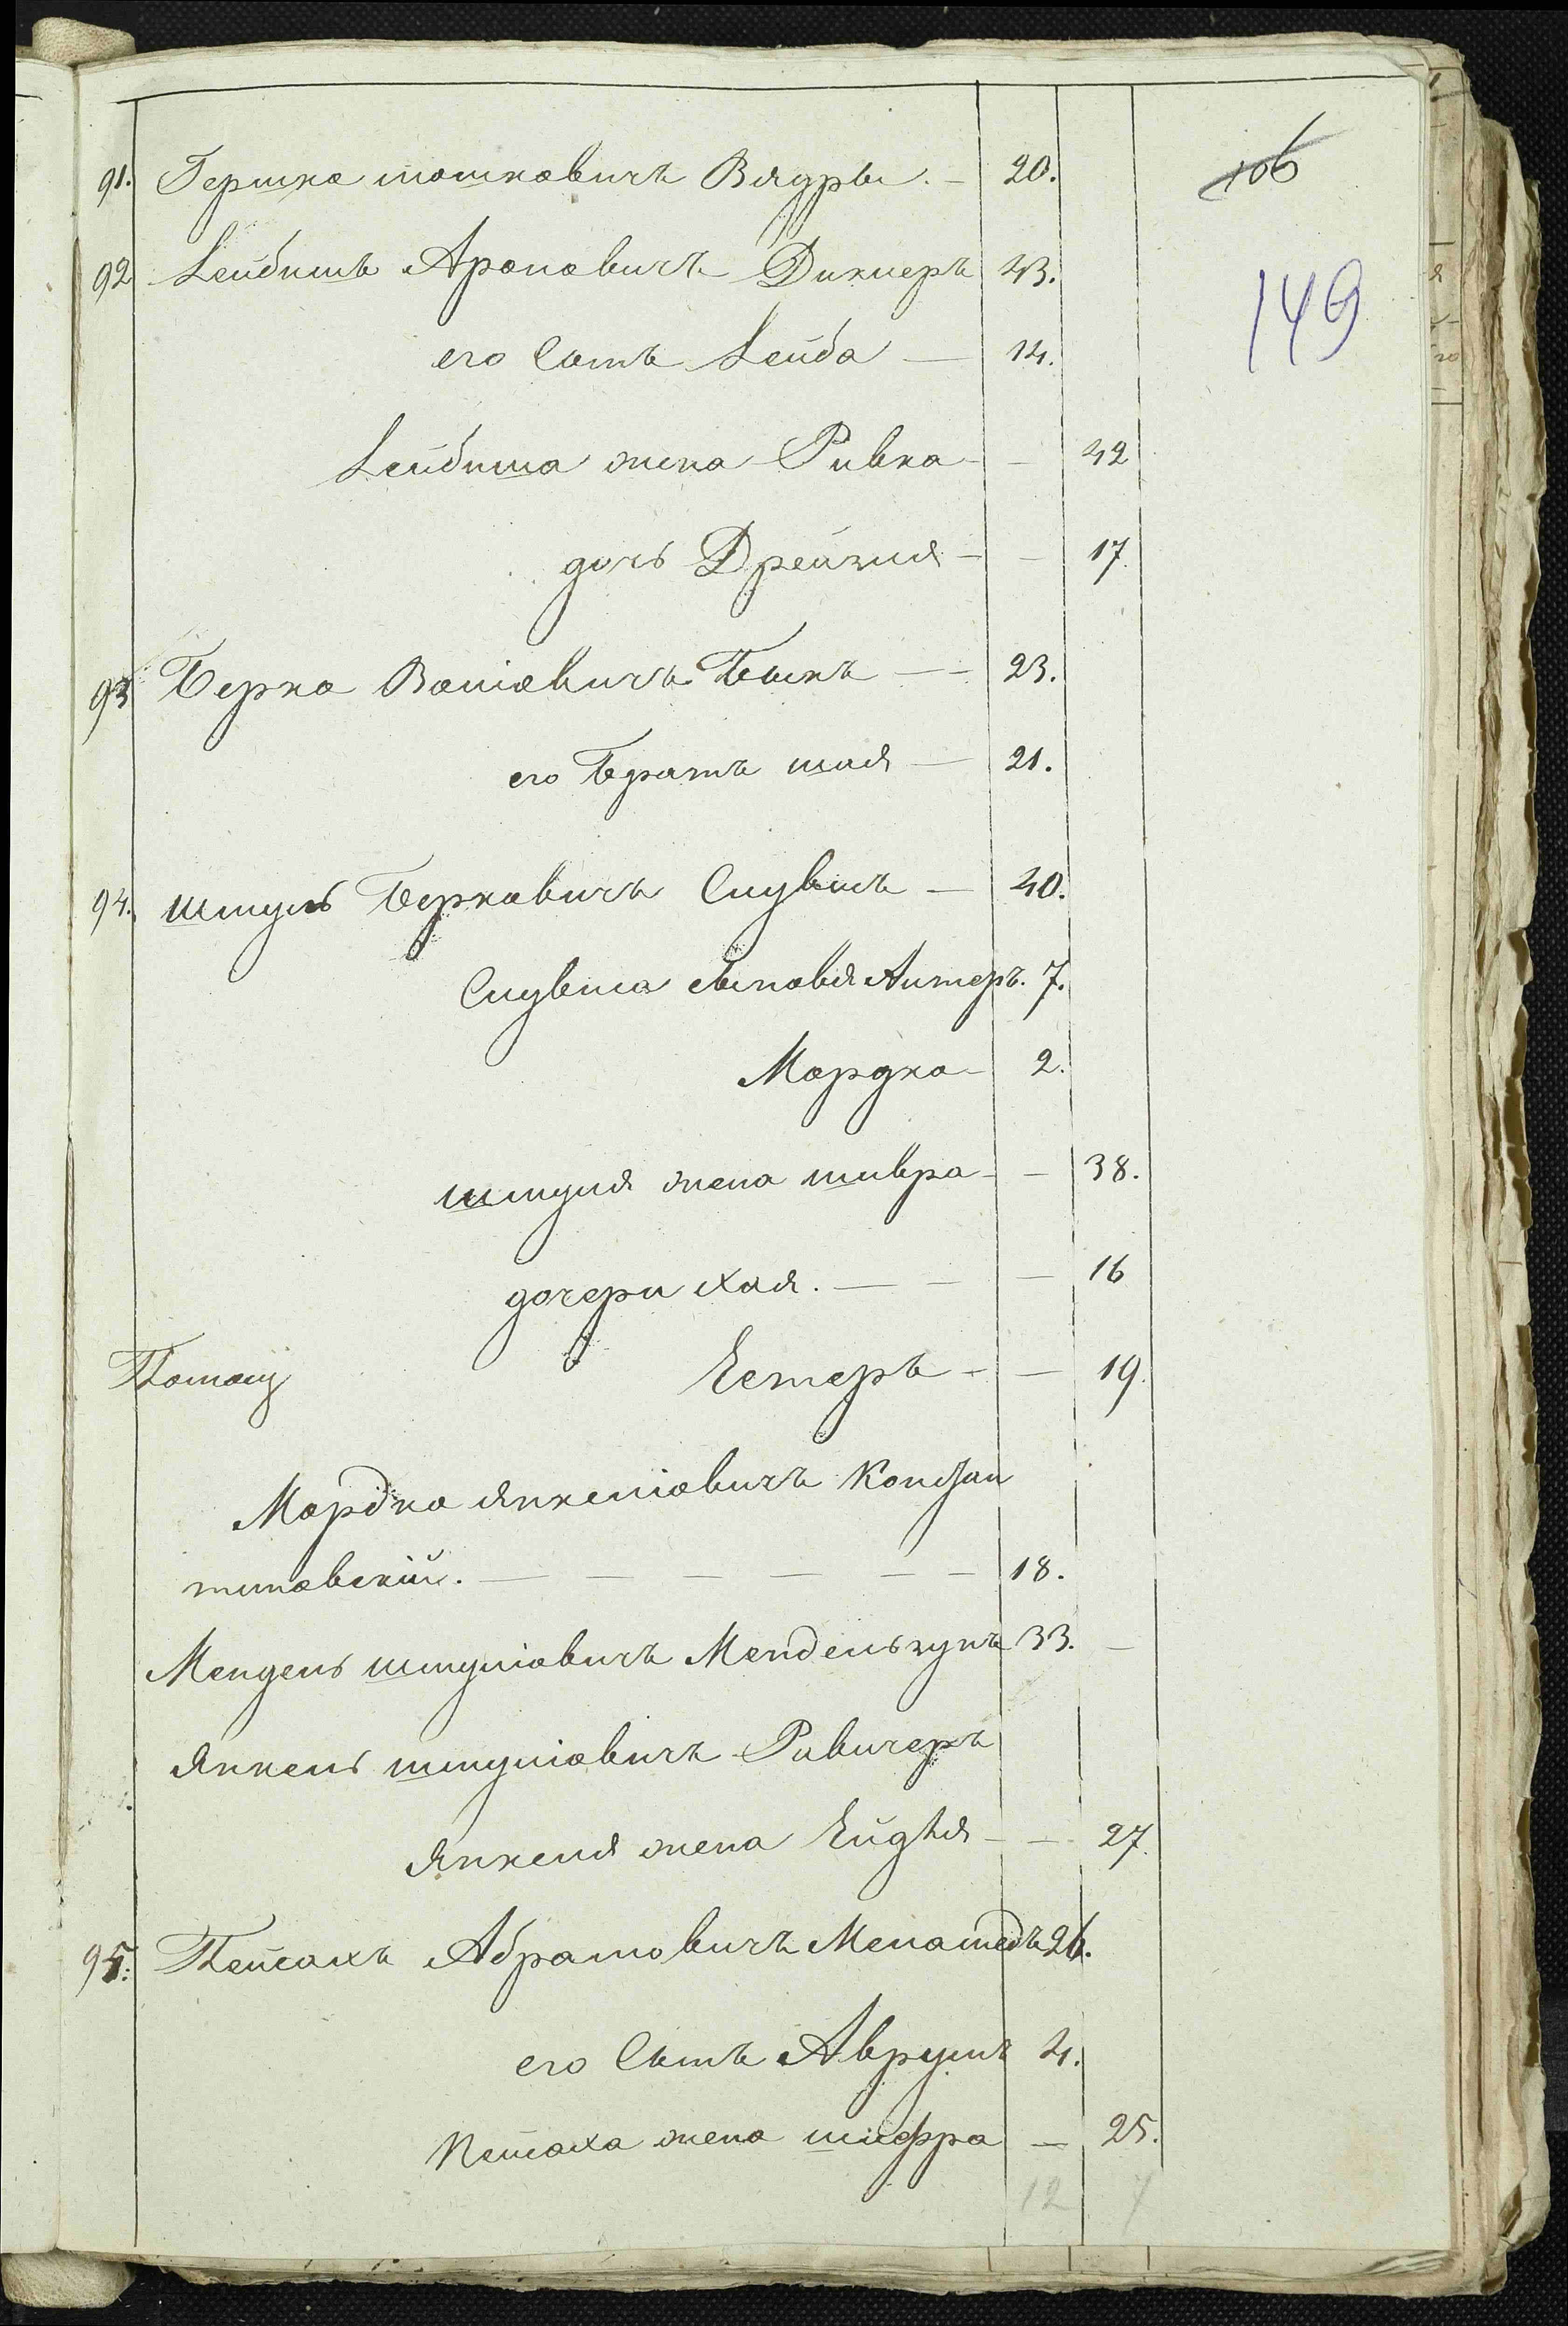 106
149
91. Гершко Мошковичъ Вядры. — 20.
92 Лейбишъ Ароновичъ Дикнеръ 43.
его Сынъ Лейба — 14.
Лейбиша жена Ривка — — 42
дочь Дрейзия — — 17.
93 Берко Воліовичъ Быкъ — — 23.
его Братъ шая — 21.
94. шмуль Берковичъ — 40.
сыновья 7.
Мордко — 2.
шмуля жена шивра — — 38.
дочери хая. — — — 16
Естеръ — — 19.
Мордко Янкеліовичъ Констан
тиновскій. — — — — — — 18.
Мендель шмуліовичъ Мендельзунъ 33. —
Янкель шмуліовичъ Ривичеръ
Янкеля жена Ейдля — — 27.
95. Пейсахъ Абрамовичъ 26.
его Сынъ Аврумъ 4.
Пейсаха жена шифра — 25.
12 7